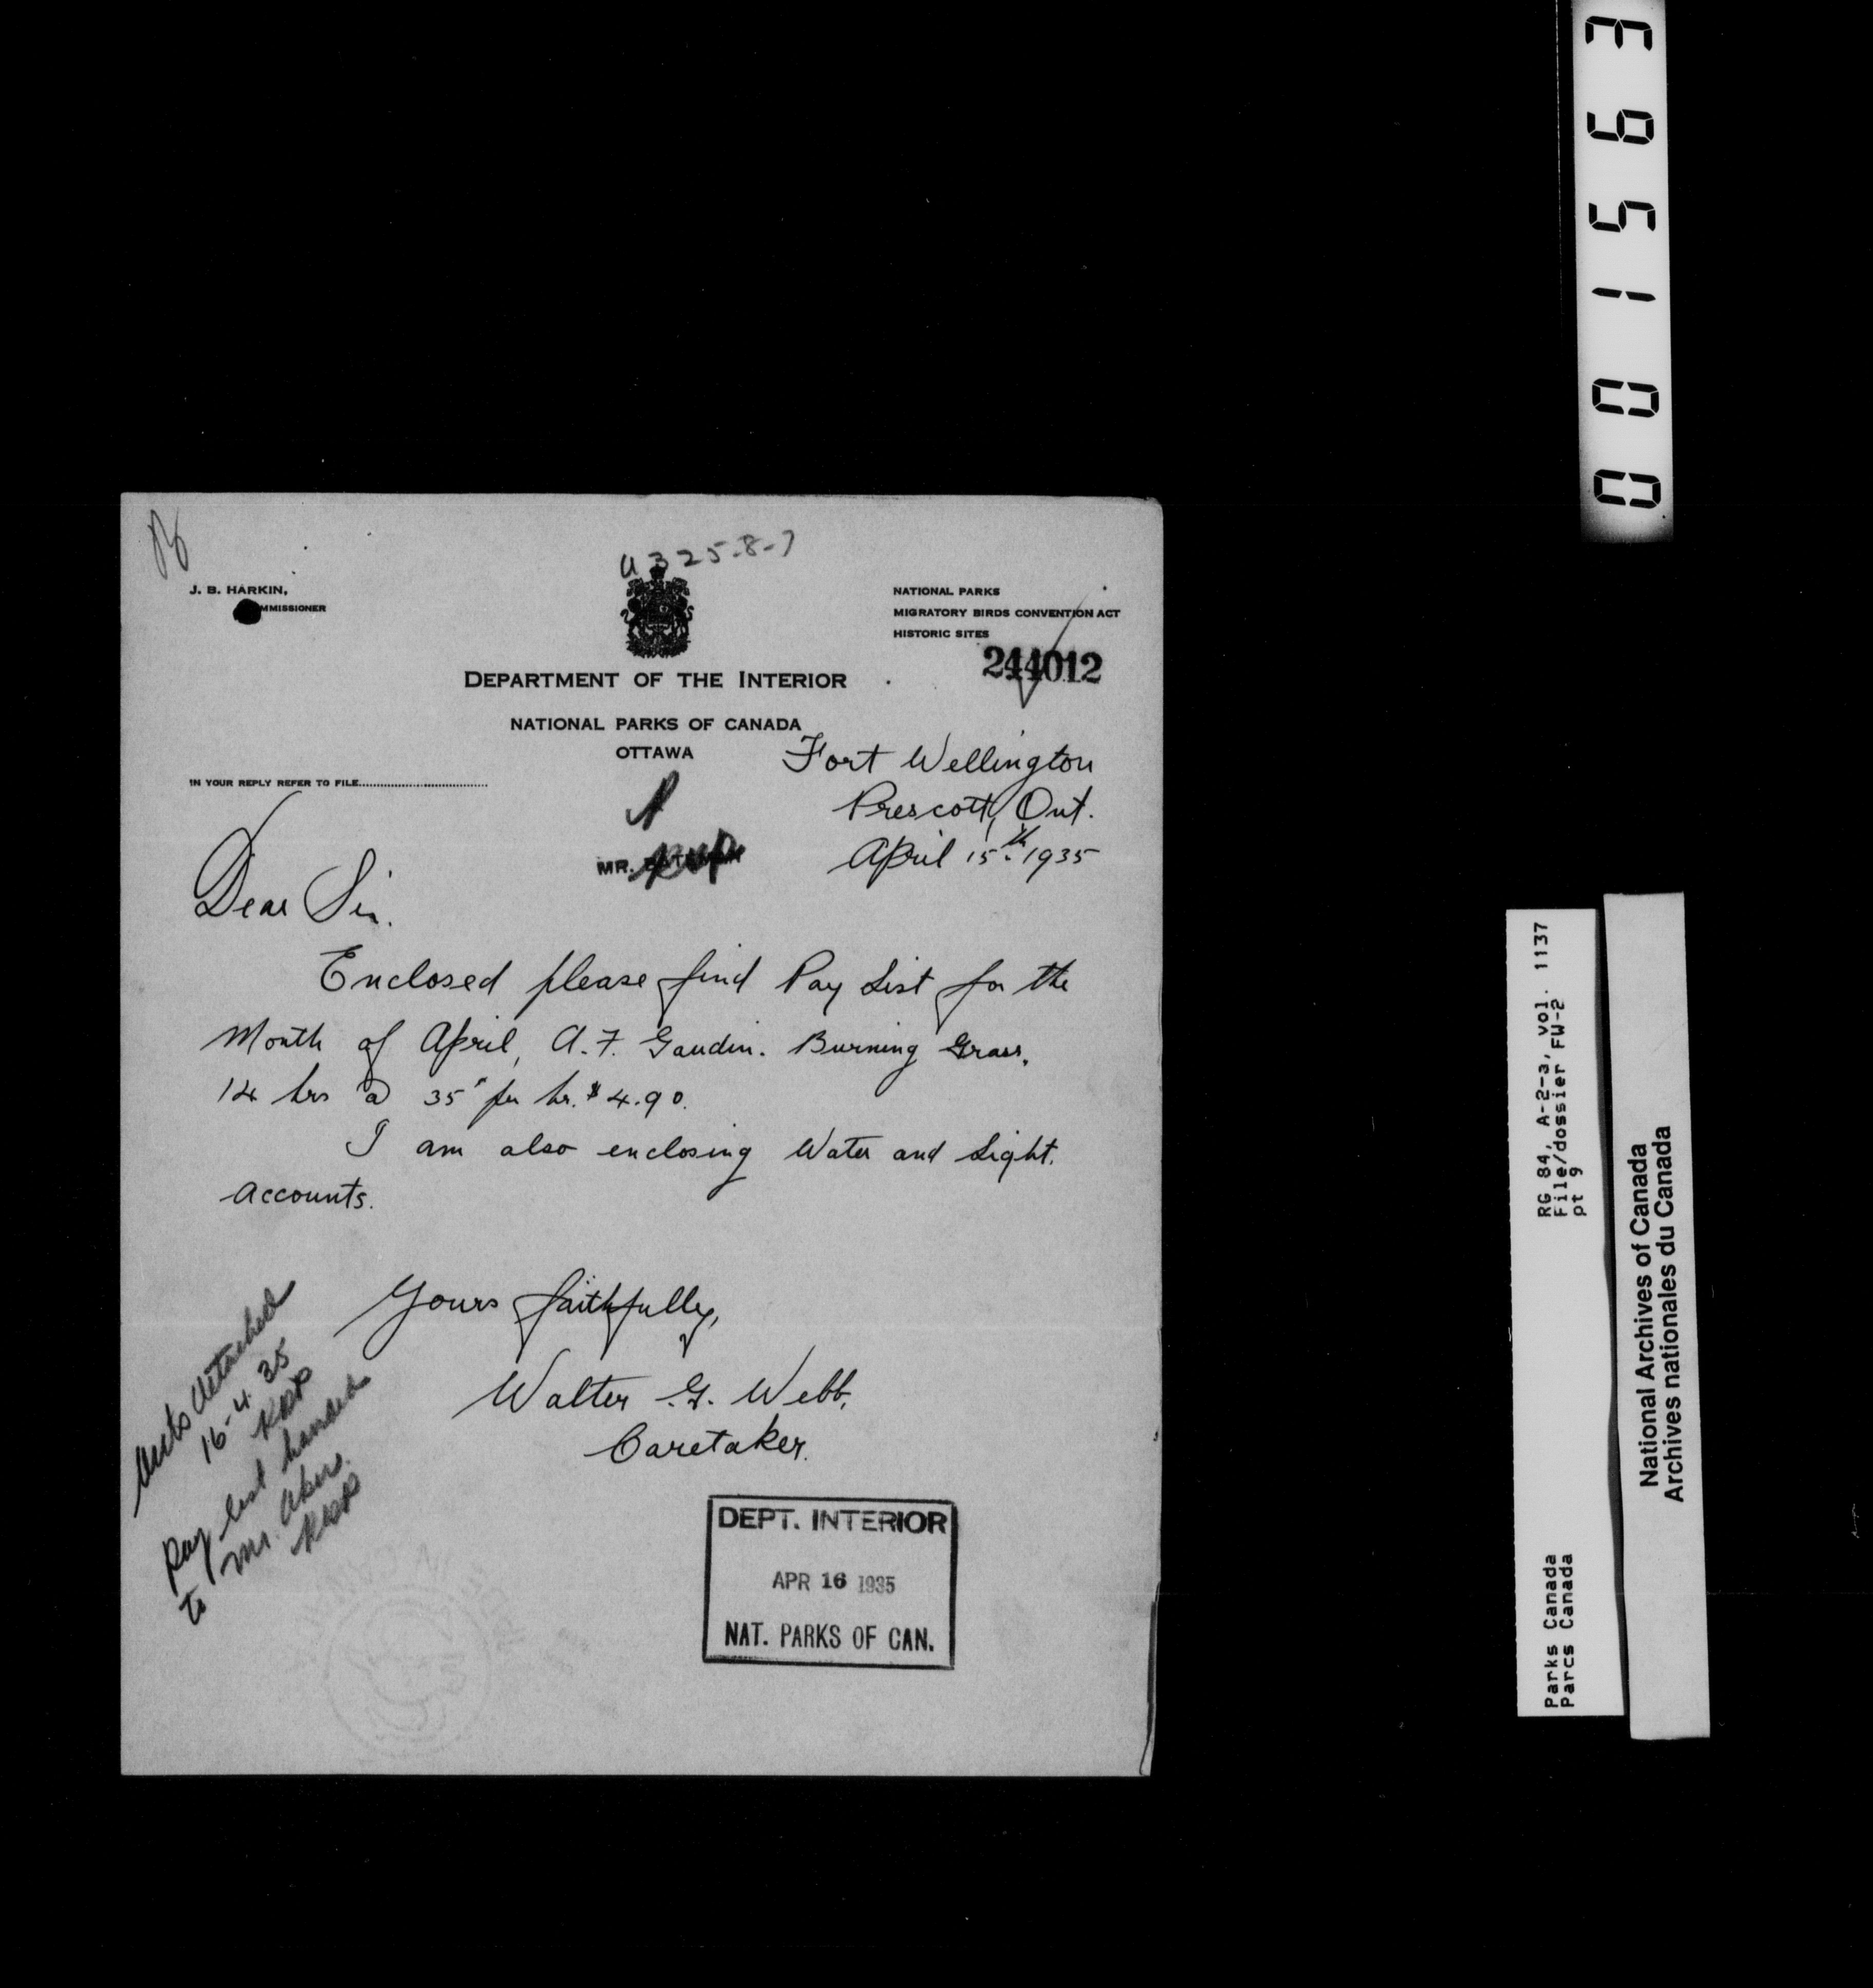 001563
U325-8-7
J. B. HARKIN,
MMISSIONER
NATIONAL PARKS
MIGRATORY BIRDS CONVENTION ACT
HISTORIC SITES
244012
DEPARTMENT OF THE INTERIOR
NATIONAL PARKS OF CANADA
OTTAWA
IN YOUR REPLY REFER TO FILE
Fort Wellington
Prescott, Ont.
April 15th. 1935
MR.
Dear Sir.
Enclosed please find Pay List for the
Month of April, A. F. Gaudin. Burning Grass.
14 hrs @ 35" per hr. $4.90.
I am also enclosing Water and Light.
accounts.
Yours faithfully,
Walter G. Webb,
Caretaker.
detached
16-4-35
Pay list handed
to Mr. Akers.
DEPT. INTERIOR
APR 16 1935
NAT. PARKS OF CAN.
RG 84, A-2-3, vol. 1137
File/dossier FW-2
pt 9
Parks Canada
Parcs Canada
National Archives of Canada
Archives nationales du Canada